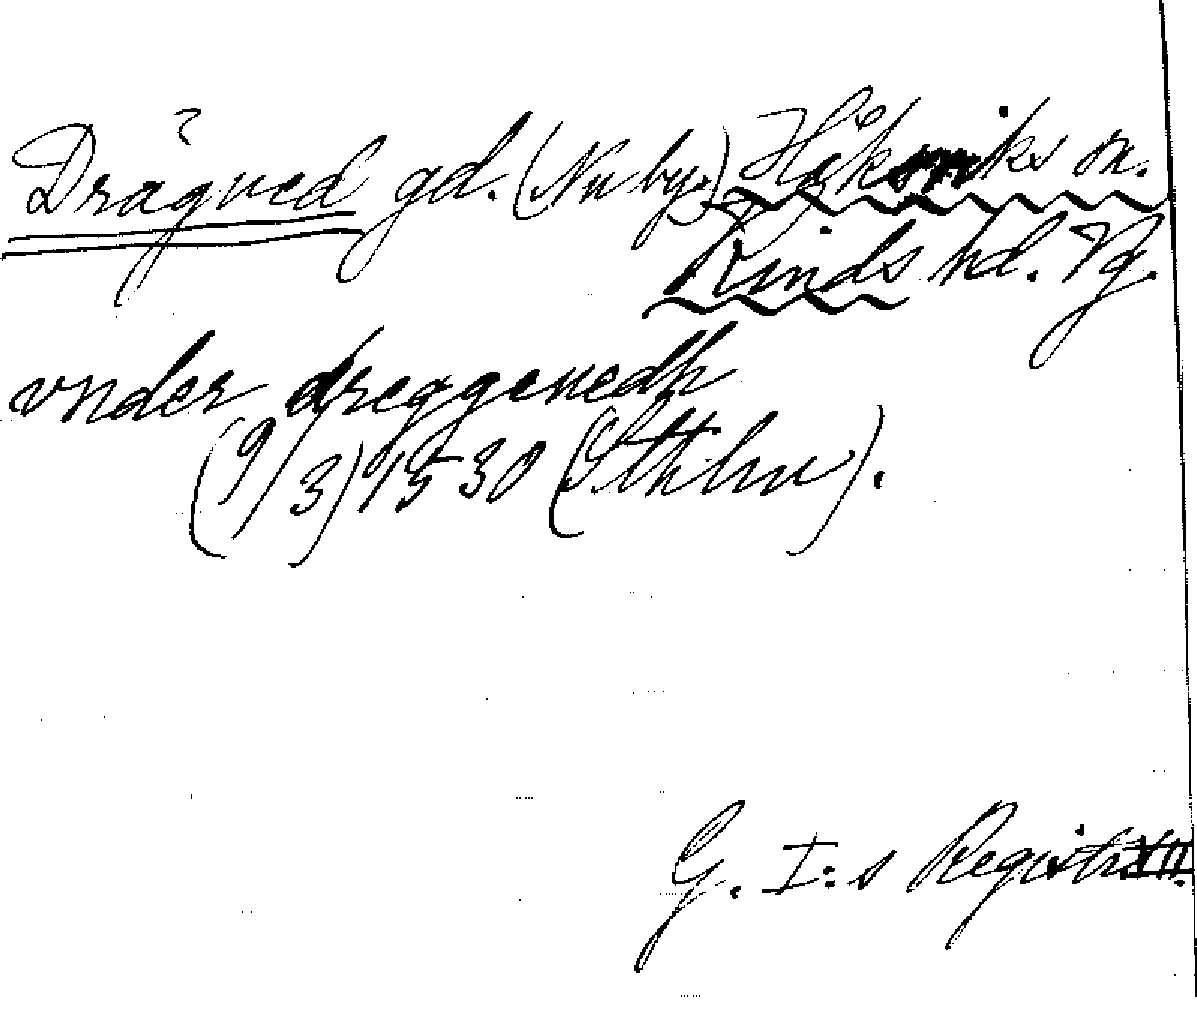 Drågved gd. (Nu by.) Håksviks sn.
Kinds hd. Vg.
vnder dreggevedh
(9/3) 1530 (Sthlm).
G. I:s Registr. VII.